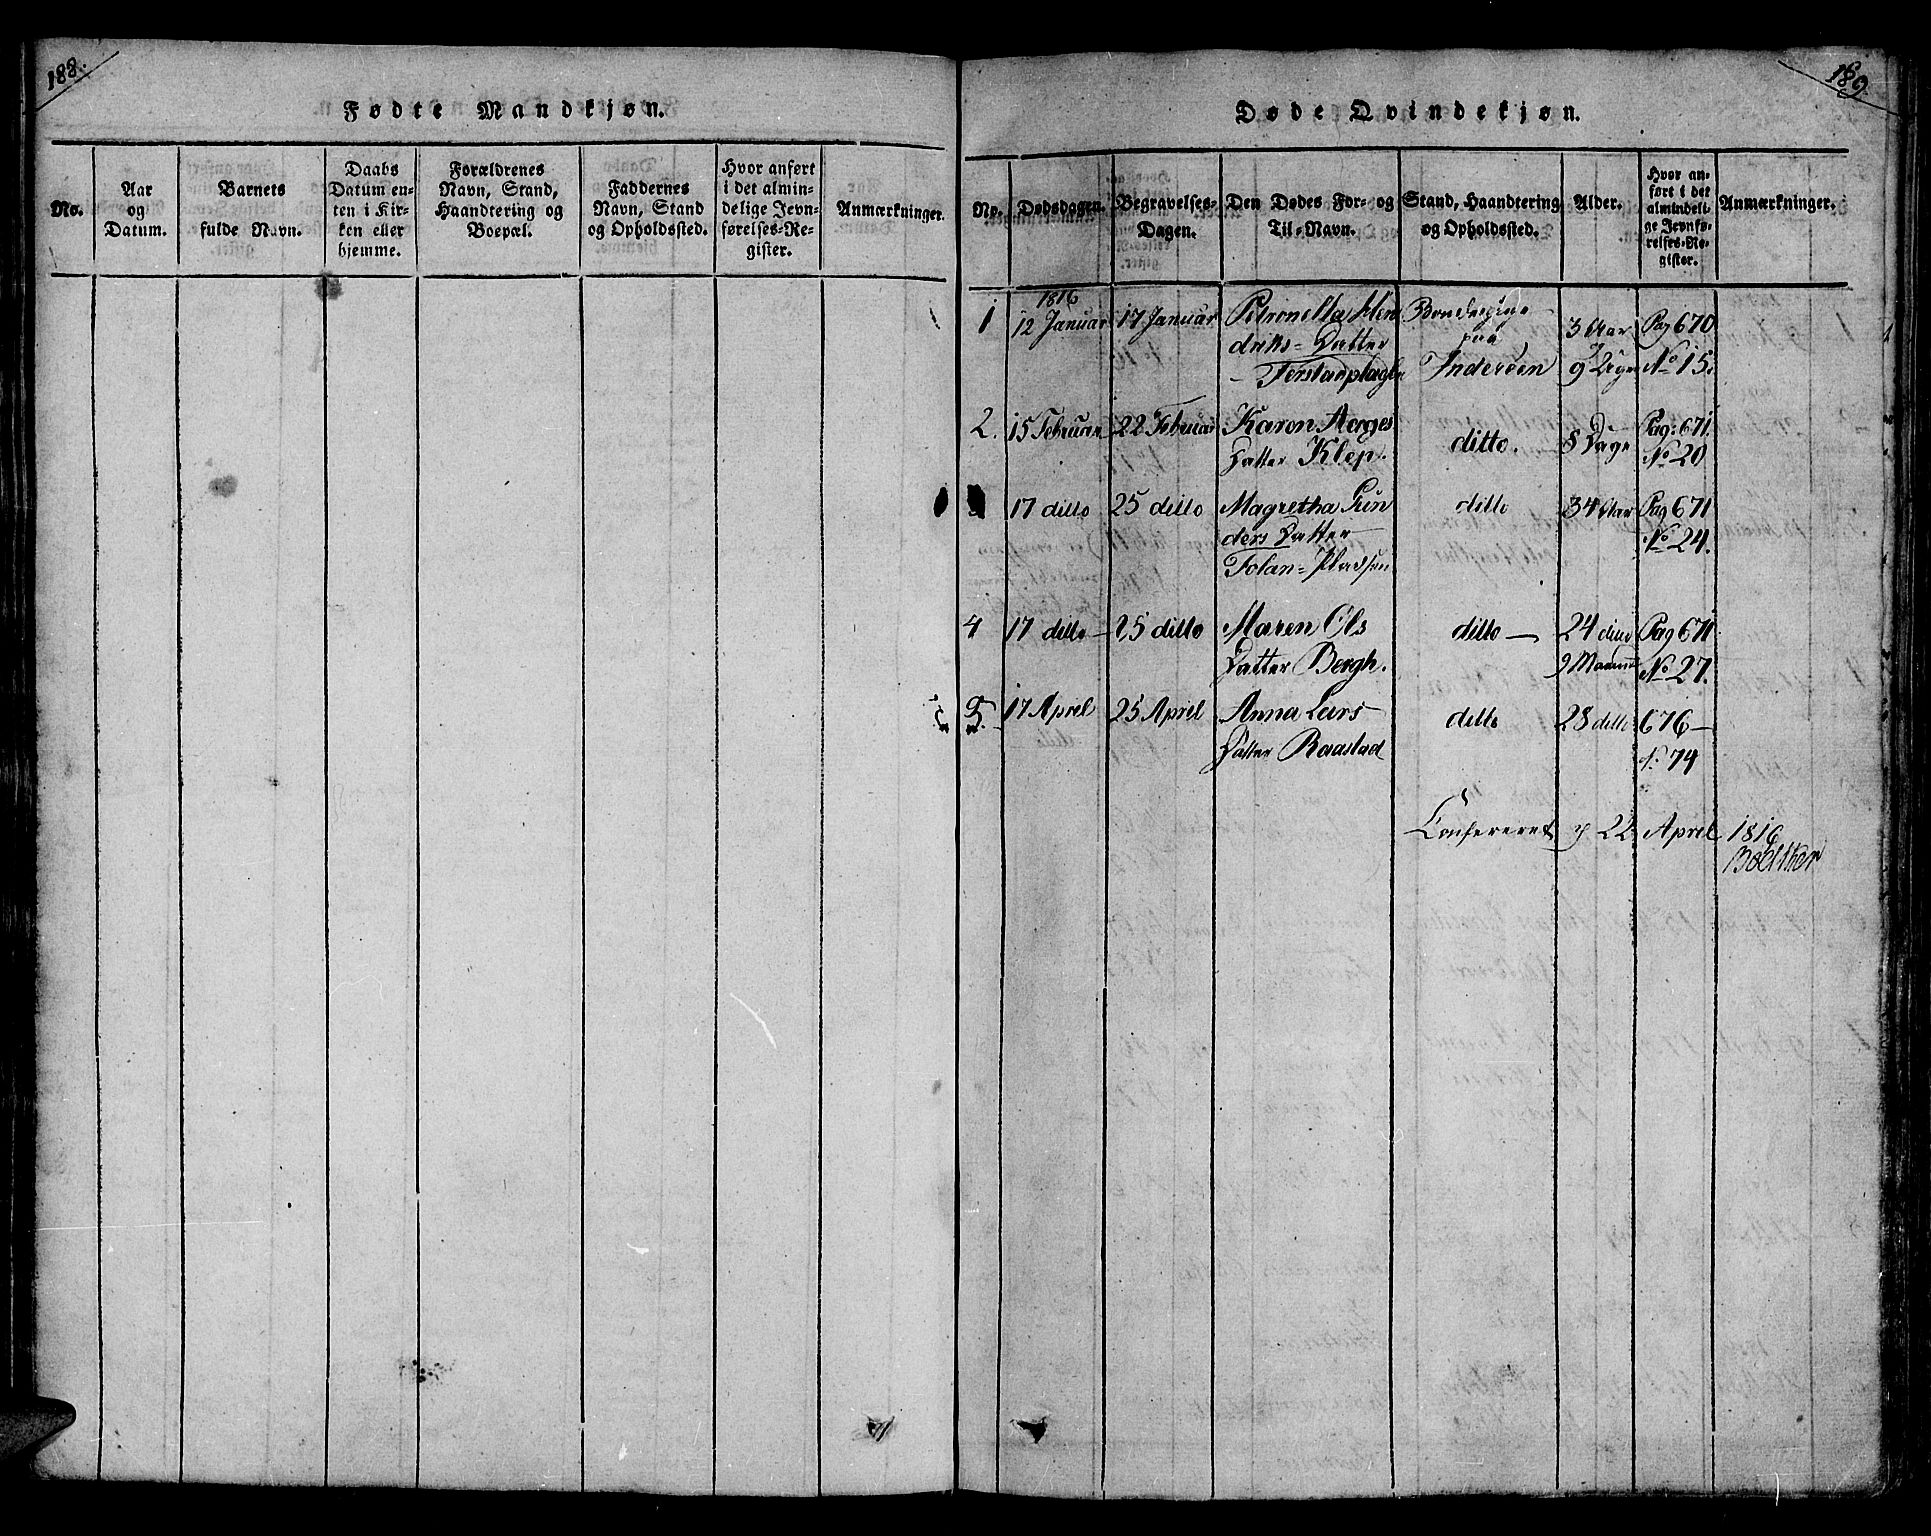 188.
Fødte Mandkjøn.
No.
Aar
og
Datum.
Barnets
fulde Navn.
Daabs
Datum en-
ten i Kir-
ken eller
hjemme.
Forældrenes
Navn, Stand,
Haandtering og
Boepæl.
Faddernes
Navn, Stand
og Opholdssted.
Hvor anført
i det almin-
delige Jevn-
førelses-Re-
gister.
Anmærkninger.
189.
Døde Qvindekjøn.
No.
Dødsdagen.
Begravelses-
Dagen.
Den Dødes For- og
Til-Navn.
Stand, Haandtering
og Opholdssted.
Alder.
Hvor an-
ført i det
almindeli-
ge Jevnfø-
relses-Re-
gister.
Anmærkninger.
1816
1 12 Januar 17 Januar Petronella Hen
driks- Datter
paa
Indersøen
3 Aar
9 Uger
Pag 670
No 15.
2. 15 Februar 22 Februar Karen Aorges
Datter Klep.
ditto. 8 Dage Pag: 671.
No 20
17 ditto 25 ditto Magretha Gun
ders Datter
Folan- Pladsen
ditto 34 Aar Pag 671
No 24.
4 17 ditto - 25 ditto Maren Ols
Datter Bergh.
ditto - 24 Aar
9 Maaneder
Pag 671
No 27.
5. 17 April 25 April Anna Lars
Datter Raastad
ditto 28 ditto 676 -
N: 74
Confereret d 22 April 1816
Bøchher